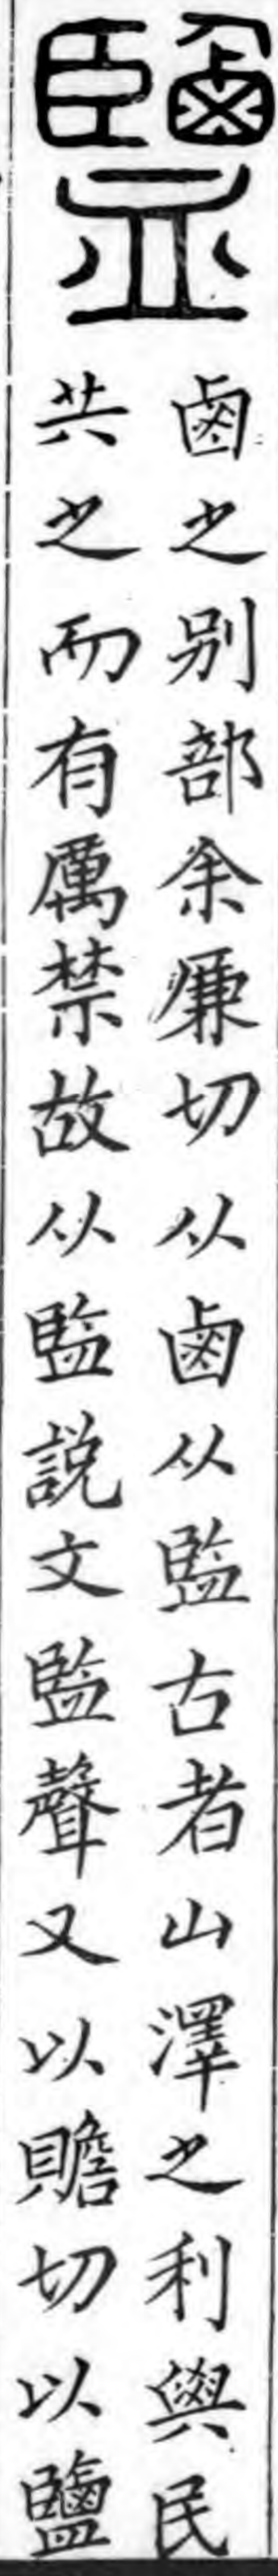 鹽
鹵之别部余廉切从鹵从監古者山澤之利與民
共之而有厲禁故从監說文監聲又以贍切以鹽